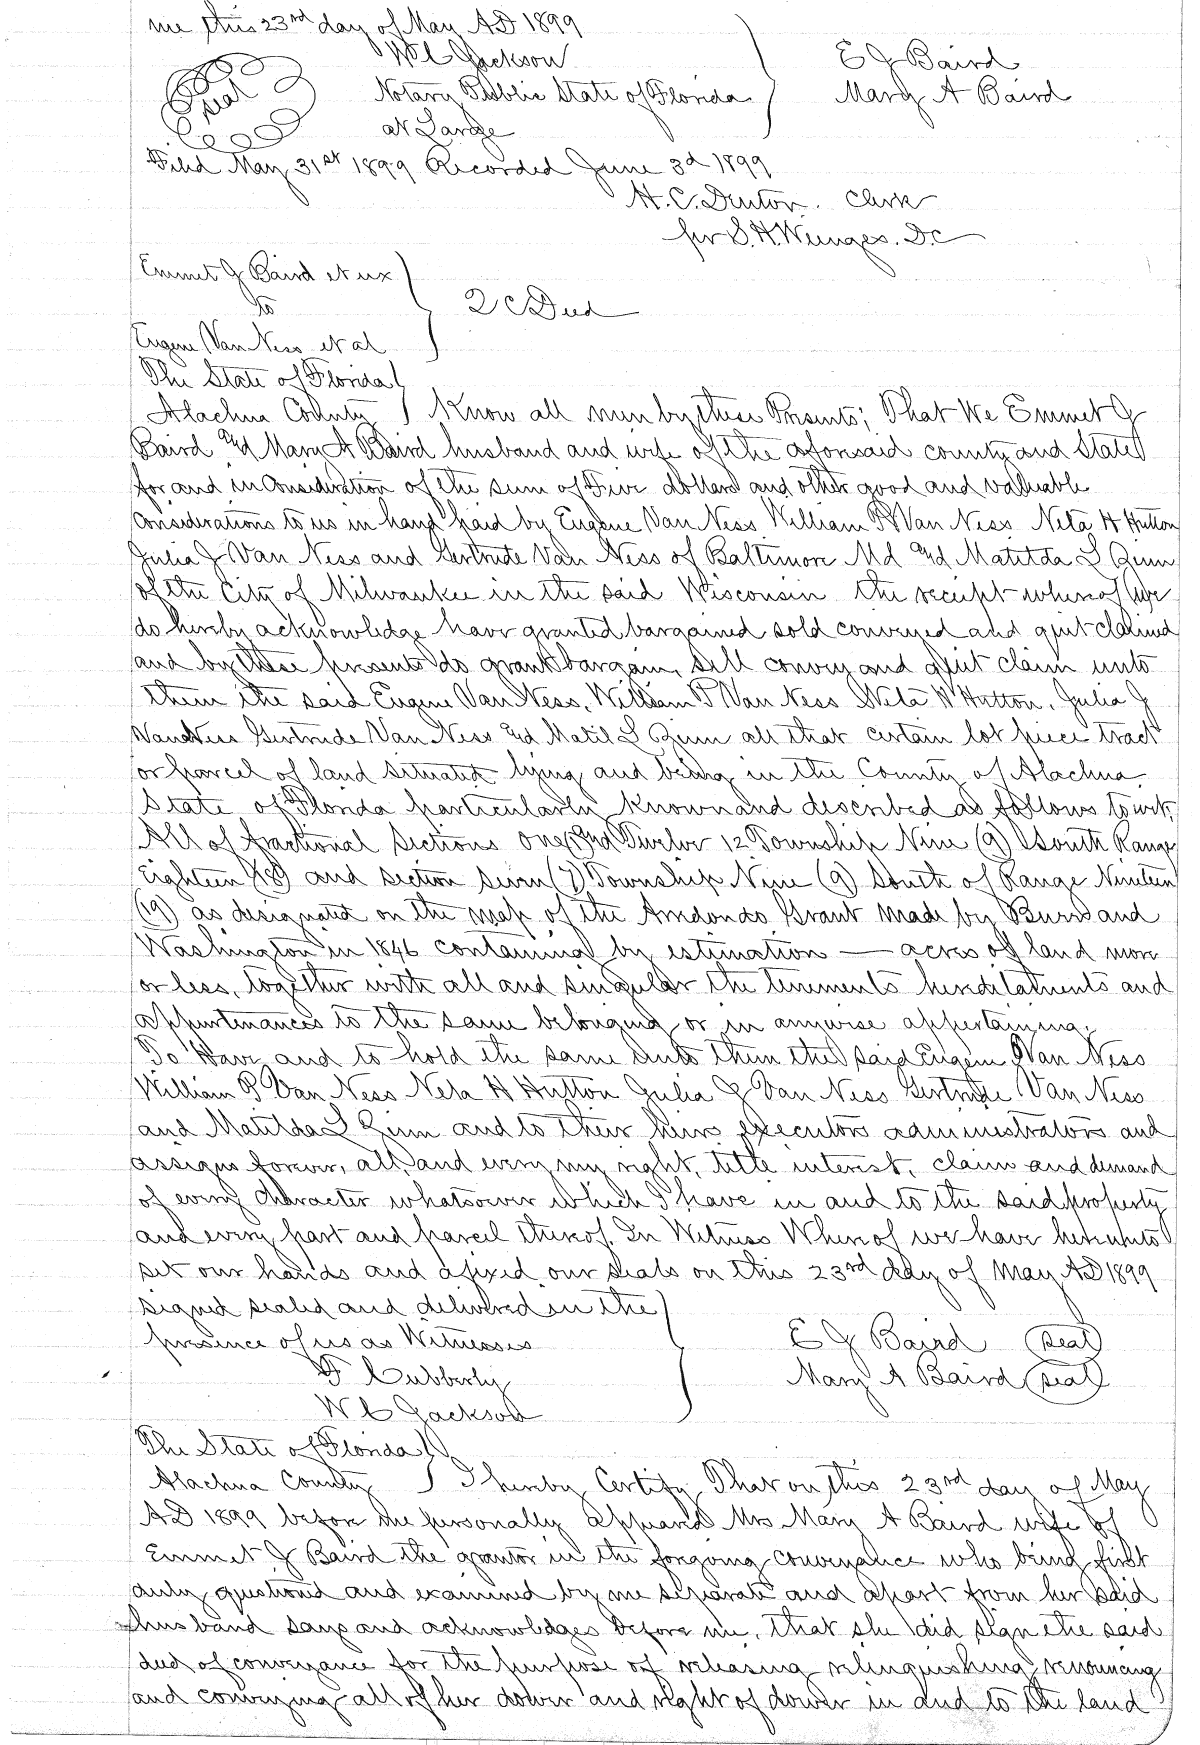 me this 23rd day of May AD 1899
W C Jackson
E J Baird
Seal
Notary Public State of Florida
Mary A Baird
at Large
Filed May 31st 1899 Recorded June 3d 1899
H. C. Denton. Clerk
per S. H. Wienges. D.C
Emmet J Baird et ux
to
Q C Deed
Eugene Van Ness et al
The State of Florida
Alachua County Know all men by these Presents; That We Emmet J
Baird and Mary A Baird husband and wife of the aforesaid county and State
for and in Consideration of the sum of Five dollars and other good and valuable
Considerations to us in hand paid by Eugene Van Ness William P Van Ness Neta H Hutton
Julia J Van Ness and Gertrude Van Ness of Baltimore Md and Matilda L Zinn
of the City of Milwaukee in the said Wisconsin the receipt whereof we
do hereby acknowledge have granted bargained sold conveyed and quit claimed
and by these presents do grant bargain, sell convey and quit claim unto
them the said Eugene Van Ness, William P Van Ness Neta W Hutton, Julia J
Van Ness Gertrude Van Ness and Matil L Zinn all that certain lot piece tract
or parcel of land situated lying and being in the County of Alachua
State of Florida particularly known and described as follows to wit;
All of fractional Sections One (1) and Twelve 12 Township Nine (9) South Range
Eighteen (18) and section Seven (7) Township Nine (9) South of Range Nineteen
(19) as designated on the map of the Arredondo Grant made by Burr and
Washington in 1846 containing by estimation — acres of land more
or less, together with all and singular the tenements hereditatments and
appurtenances to the same belonging or in anywise appertaining,
To Have and to hold the same unto them the said Eugene Van Ness
William P Van Ness Neta H Hutton Julia J Van Ness Gertrude Van Ness
and Matilda L Zinn and to their heirs executors administrators and
assigns forever, all, and every my right, title interest, claim and demand
of every character whatsoever which I have in and to the said property
and every part and parcel thereof. In Witness Whereof we have hereunto
set our hands and afixed our seals on this 23rd day of May AD 1899
Signed sealed and delivered in the
presence of us as Witnesses
E J Baird Seal
F Cubberly
Mary A Baird Seal
W C Jackson
The State of Florida
Alachua County I hereby Certify That on this 23rd day of May
AD 1899 before me personally appeared Mrs Mary A Baird wife of
Emmet J Baird the grantor in the forgoing conveyance who being first
duly questioned and examined by me separate and apart from her said
husband says and acknowledges before me, that she did sign the said
deed of conveyance for the purpose of releasing relinquishing renouncing
and conveying all of her dower and right of dower in and to the land